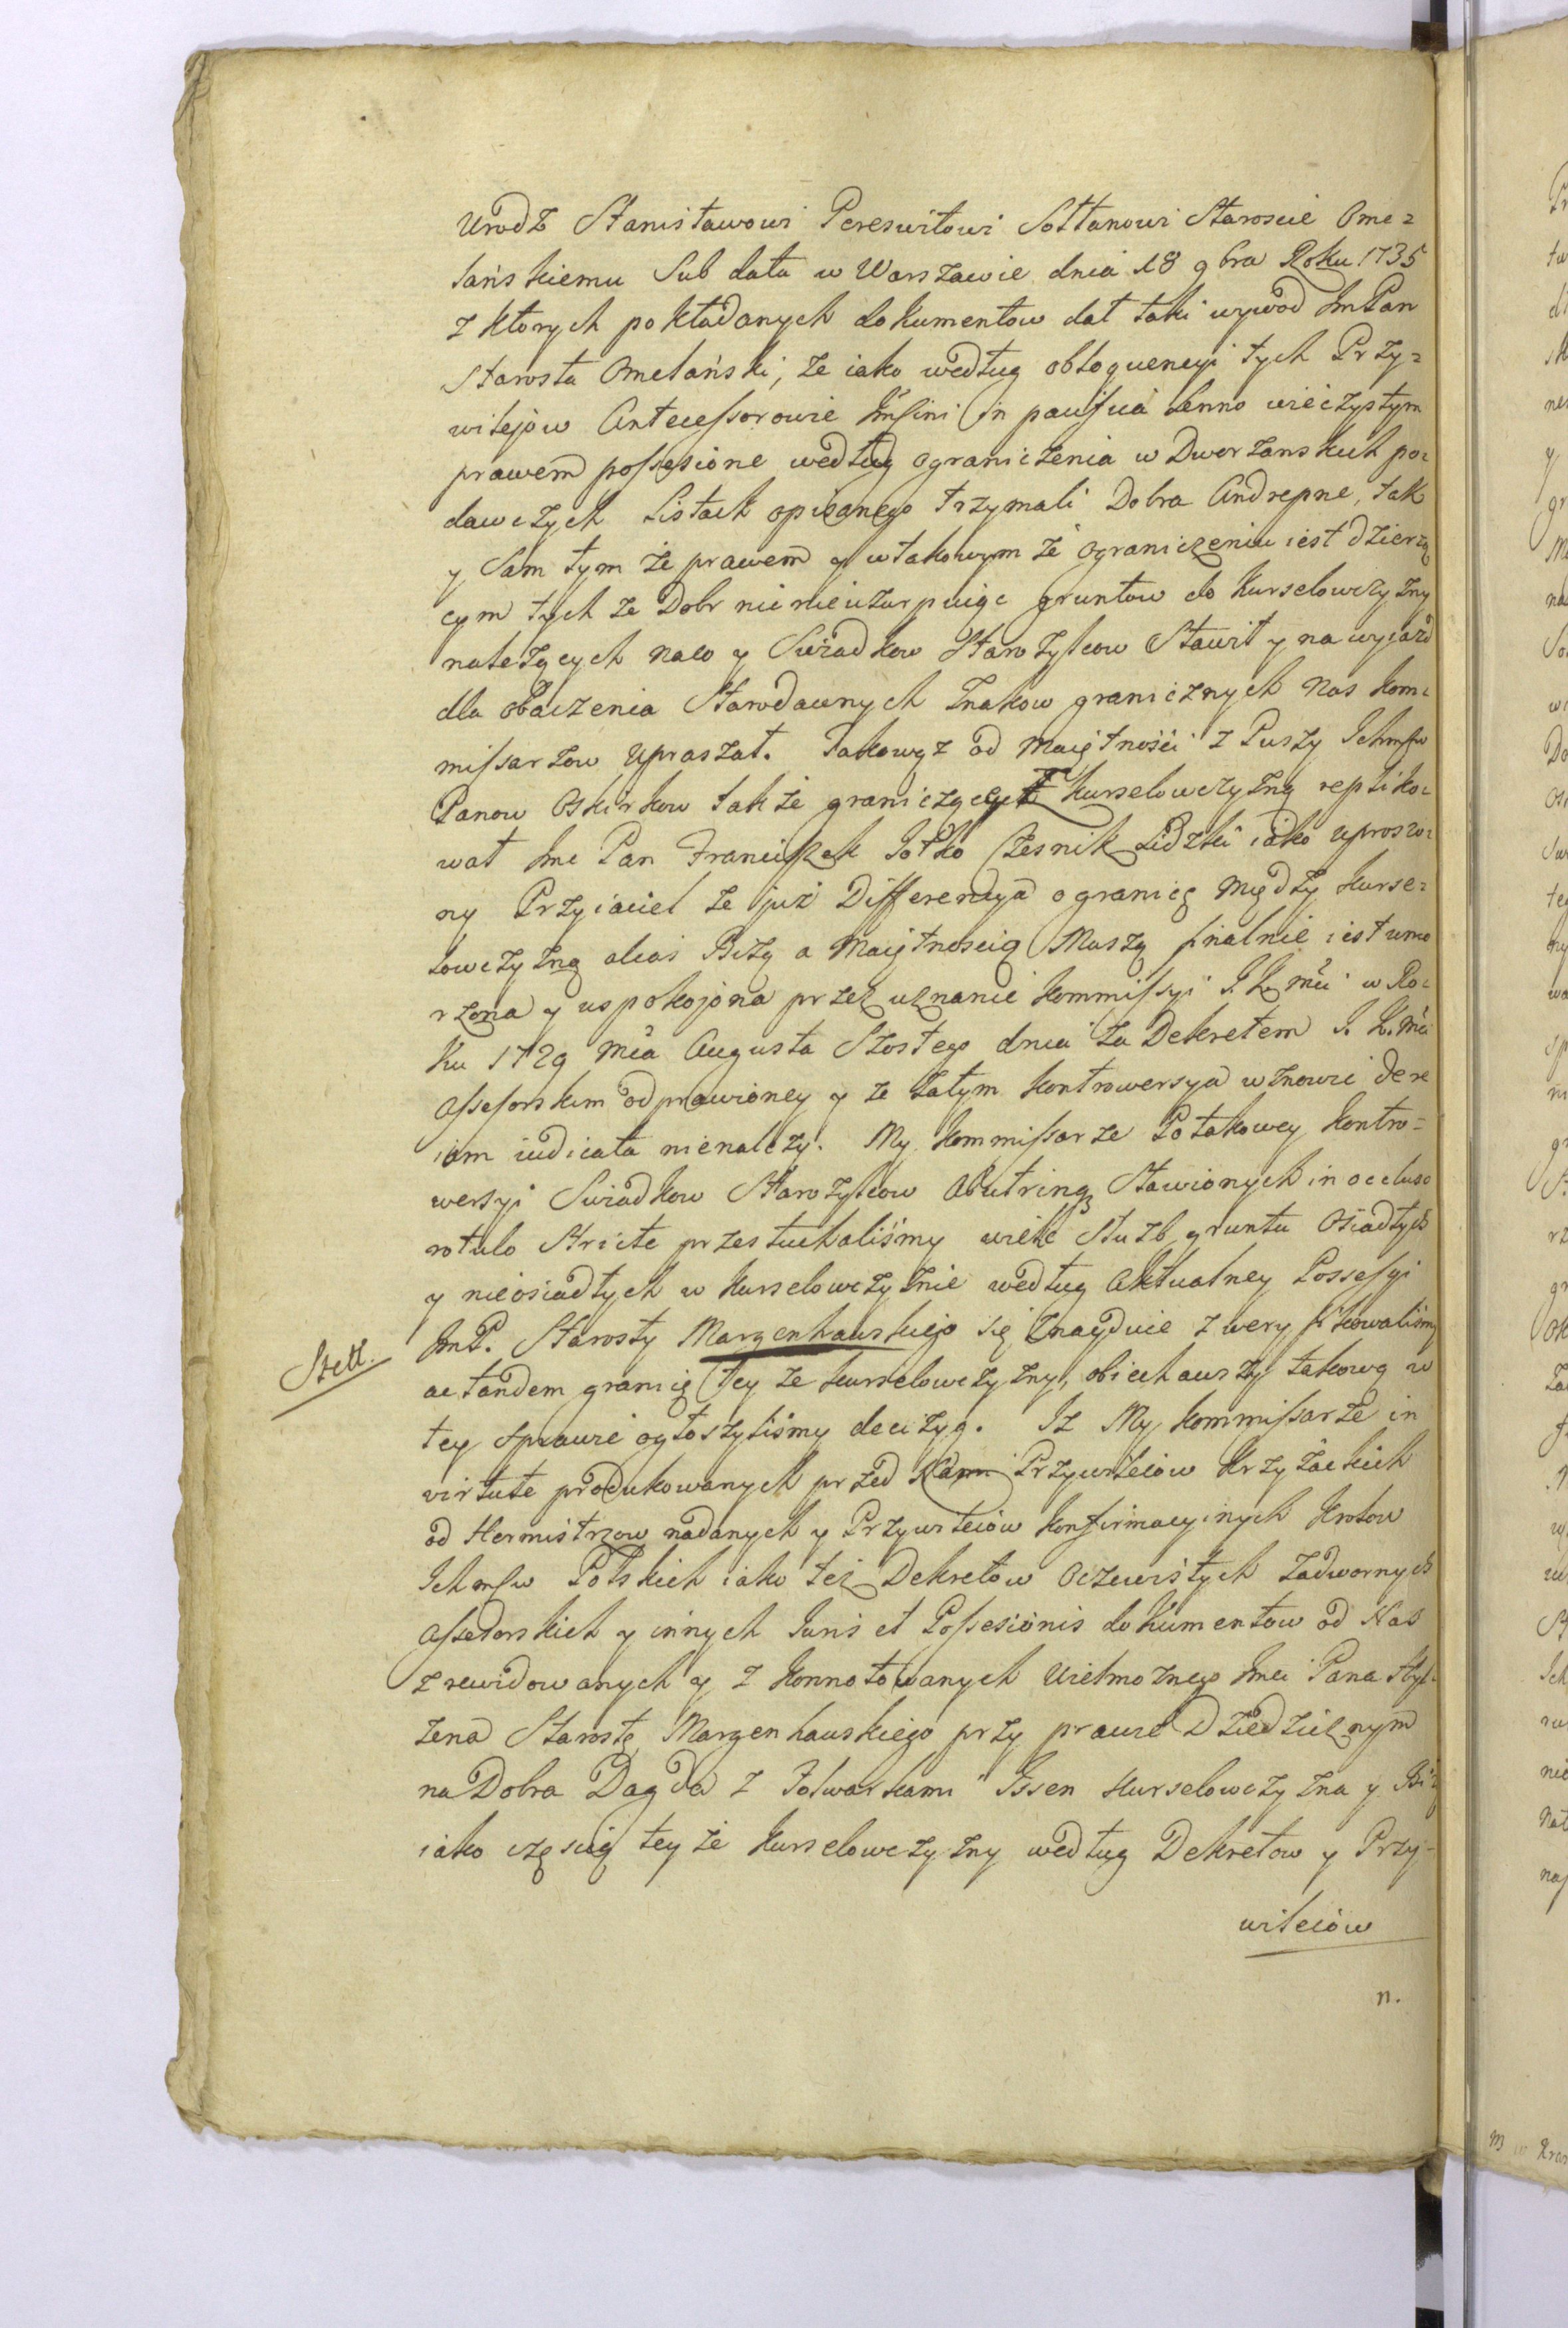 Urodz Stanisławowi Pereswitowi Sołtanowi Staroscie Ome=
lańskiemu Sub data w Warszawie dnia 18 gbra Roku 1735
z ktorych pokładanych dokumentow dał taki wywod ImPan
Starosta Omelański, że iako według obloquencyi tych Przy=
wilejow Antecessorowie in lenno wieczystym
prawem possesione według ograniczenia w Dworzanskich po=
dawczych Listach opisanego trzymali Dobra Andrepne, tak
y Sam tym że prawem y w takowym że ograniczeniu iest dzierżą
cym tych że Dobr nic nieuzurpuiąc gruntow do Kurselowczyzny
należących naco y Swiadkow Starożylcow Stawił y na wyiazd
dla obaczenia Starodawnych Znakow granicznych Nas Kom=
missarzow upraszał. Takowyz od Maiętności z Puszy Ichmsw
Panow Oskirkow także graniczącey z Kurselowczyzną repliko=
wał Imc Pan Franciszek Jotko Czesnik Lidzki iako uproszo=
ny Przyiaciel że już Differencya o granicę między Kurse=
lowczyzną alias Biżą a Maiętnoscią Maszą finalnie iest umo
rzona y uspokojona przez uznanie Kommissyi J. K. mci w Ro=
ku 1729 Mca Augusta Szostego dnia za Dekretem J. K. Mci
Assesorskim odprawioney y że zatym kontrowersya wznowić de re
iam iudicata nienależy. My Kommissarze Potakowey Kontro=
wersyi Swiadkow Starożylcow Abutrinq Stawionych in occluso
rotulo Stricte przesłuchaliśmy wiele Służb gruntu Osiadłych
y nieosiadłych w Kurselowczyznie według Aktualney Possessyi
ImP. Starosty Marzenhauskiego się znayduie zweryfikowaliśmy
Stett.
ac tandem granicę tey że Kurselowczyzny, obiechawszy takową w
tey Sprawie ogłoszyliśmy decizyą. Iż My Kommissarze in
virtute produkowanych przed Nami Przywileiow Krzyżackich
od Hermistrzow nadanych y Przywileiow Konfirmacyinych Krolow
Ichmsw Polskich iako też Dekretow Oczewistych Zadwornych
Assesorskich y innych Juris et Possesionis dokumentow od Nas
zrewidowanych y z konnotowanych Wielmożnego Imci Pana Hyl=
zena Starostę Marzenhauskiego przy prawie Dziedzicznym
na Dobra Dagda z Folwarkami Issen Kurselowczyzna y Biż
iako częscią tey że Kurselowczyzny według Dekretow y Przy-
wileiow
n.